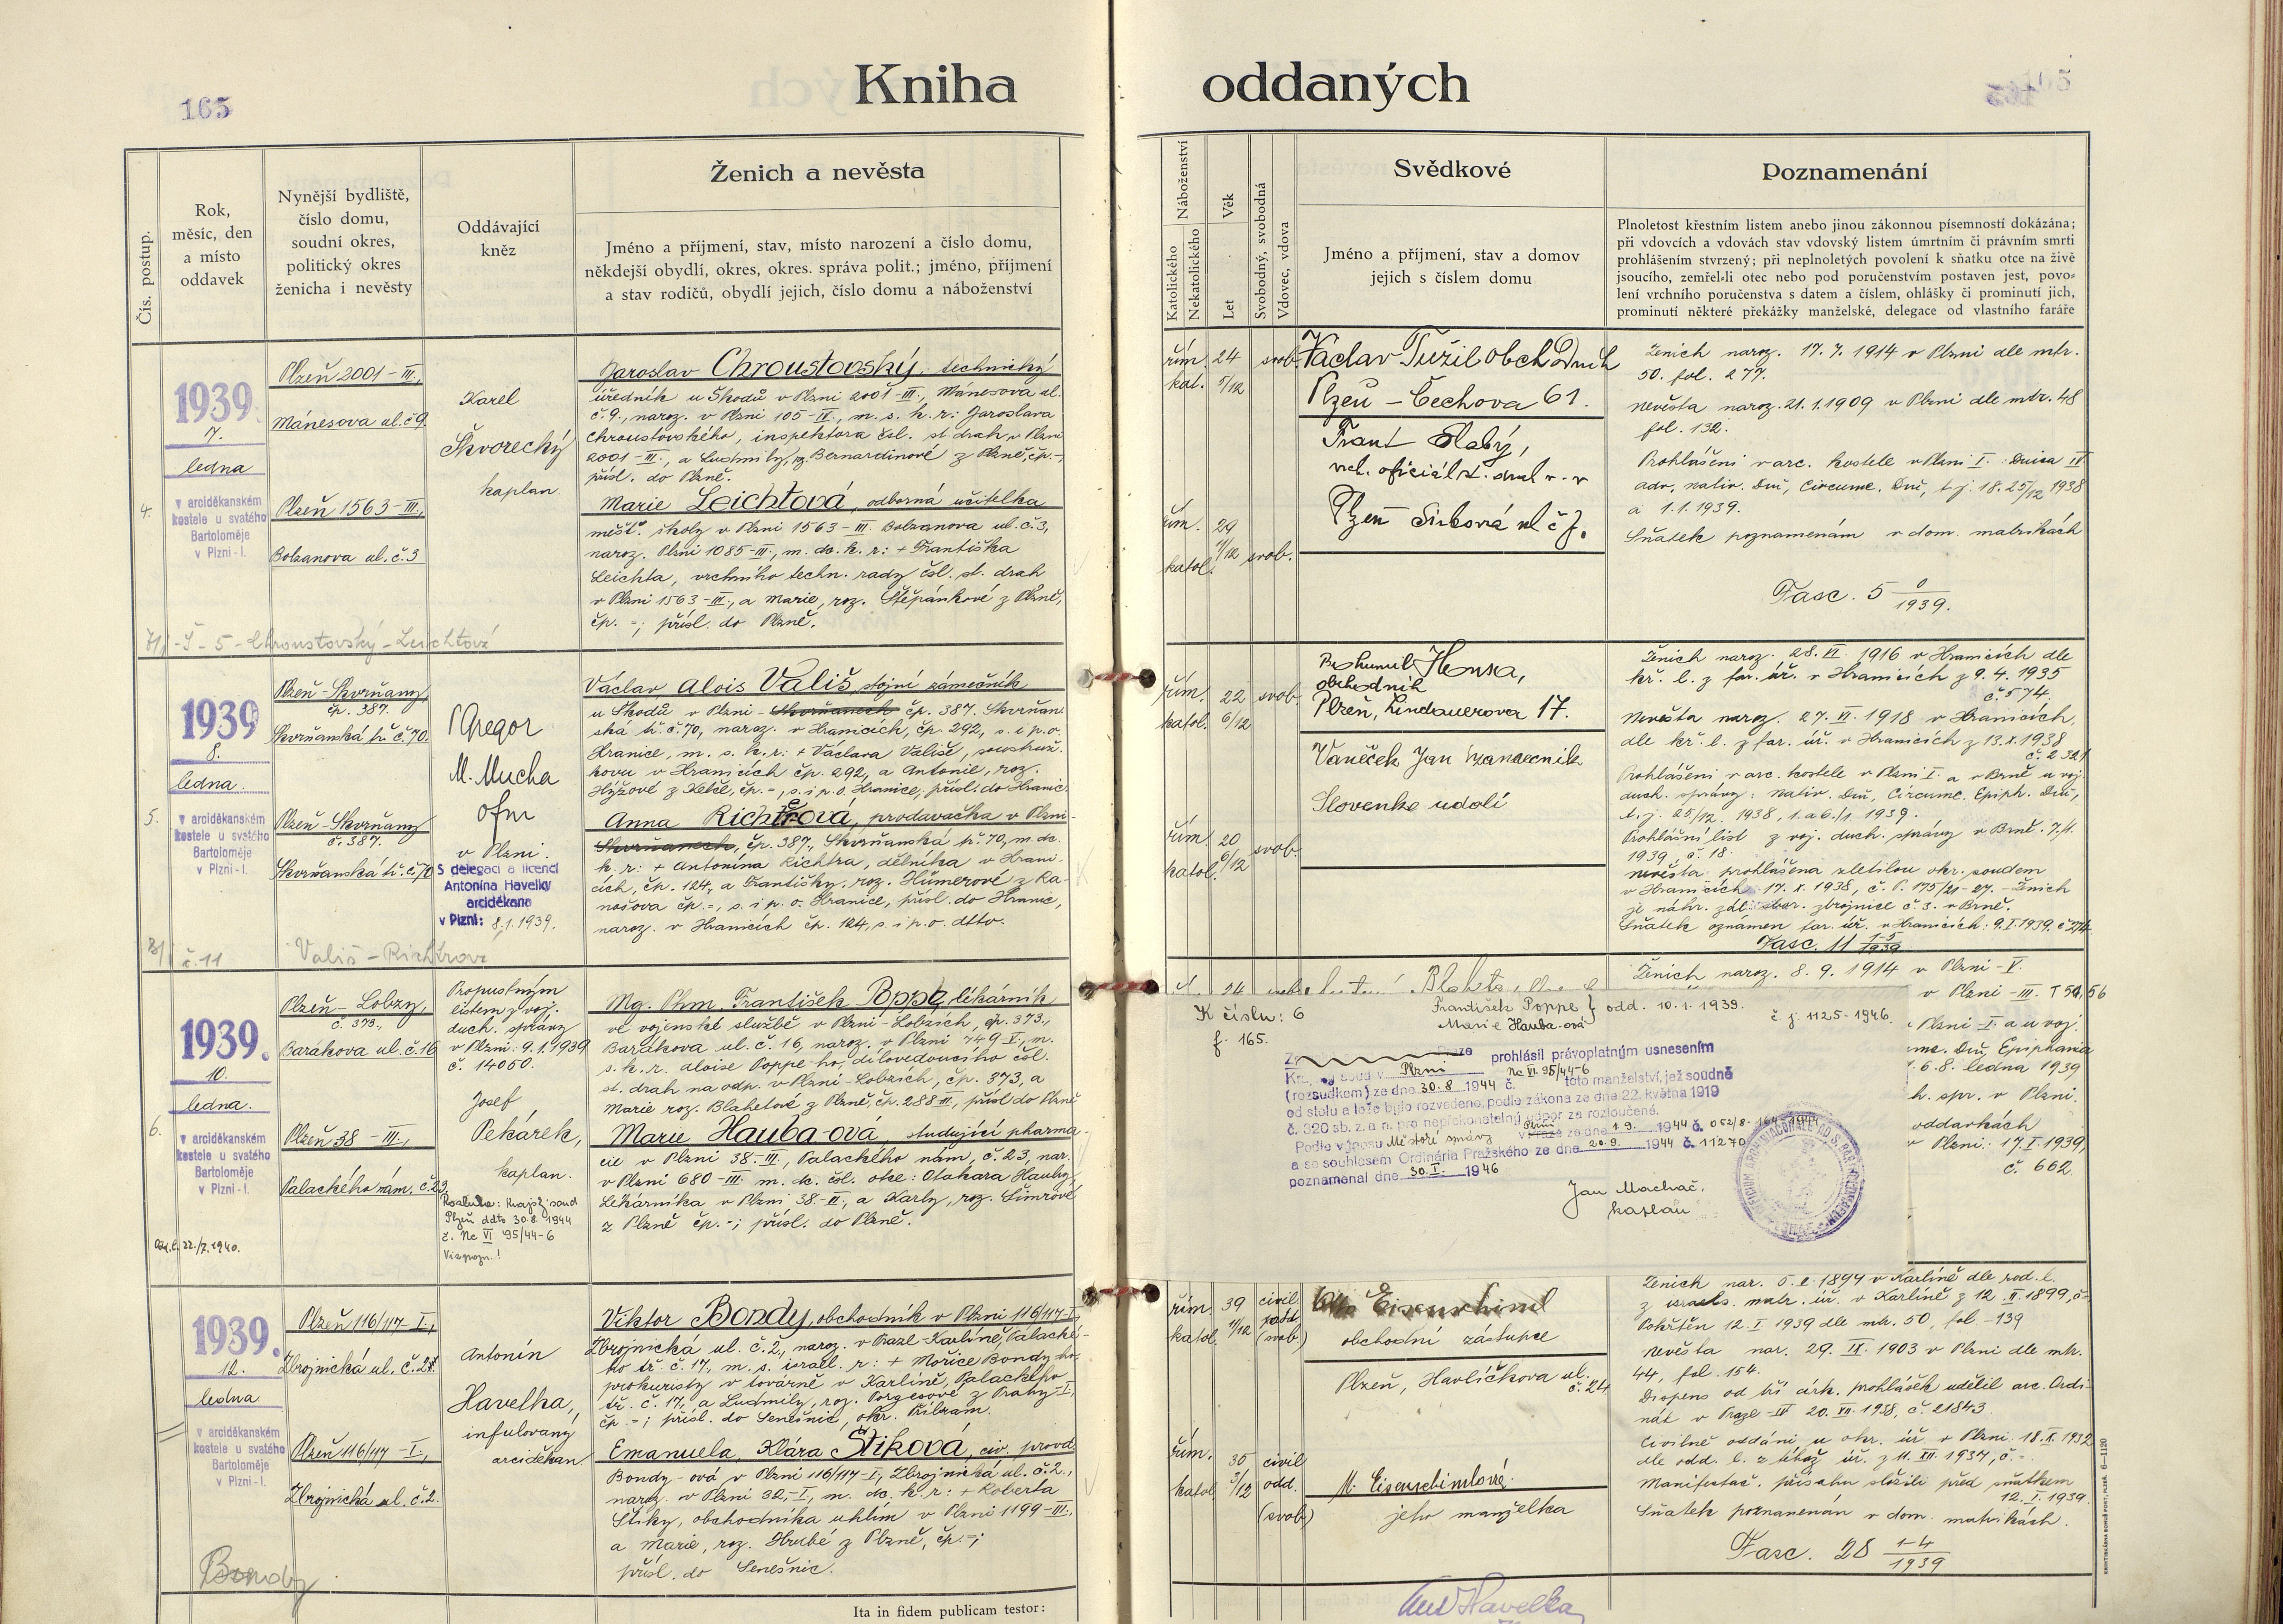 165
Kniha oddaných
Čís. postup.
Rok,
měsíc, den
a místo
oddavek
Nynější bydliště,
číslo domu,
soudní okres,
politický okres
ženicha i nevěsty
Oddávající
kněz
Ženich a nevěsta
Jméno a příjmení, stav, místo narození a číslo domu,
někdejší obydlí, okres, okres. správa polit.; jméno, příjmení
a stav rodičů, obydlí jejich, číslo domu a náboženství
Náboženství
Katolického
Nekatolického
Věk
Let
Svobodný, svobodná
Vdovec, vdova
Svědkové
Jméno a příjmení, stav a domov
jejich s číslem domu
Poznamenání
Plnoletost křestním listem anebo jinou zákonnou písemností dokázána;
při vdovcích a vdovách stav vdovský listem úmrtním či právním smrti
prohlášením stvrzený; při neplnoletých povolení k sňatku otce na živě
jsoucího, zemřel-li otec nebo pod poručenstvím postaven jest, povo-
lení vrchního poručenstva s datem a číslem, ohlášky či prominutí jich,
prominutí některé překážky manželské, delegace od vlastního faráře
4.
1939
7.
ledna
v arciděkanském
kostele u svatého
Bartoloměje
v Plzni-I.
Plzeň 2001-III.,
Mánesova ul. č 9.
Plzeň 1563-III.,
Bolzanova ul. č. 3
Karel
Škvorecký
kaplan
Jaroslav Chroustovský, technický
úředník u Škodů v Plzni 2001-III., Mánesova ul.
č. 9., naroz. v Plzni 105-II., m. s. k. r.: Jaroslava
Chroustovského, inspektora čsl. st. drah v Plzni
2001-III., a Ludmily, roz. Bernardinové z Plzně, čp. -,
přísl. do Plzně.
Marie Leichtová, odborná učitelka
měšť. školy v Plzni 1563-III. Bolzanova ul. č. 3,
naroz. Plzni 1085-III., m. dc. k. r.: + Františka
Leichta, vrchního techn. rady čsl. st. drah
v Plzni 1563-III., a Marie, roz. Štěpánkové z Plzně,
čp. =; přísl. do Plzně.
řím. 24 svob.
kat. 5/12
řím. 29
11/12 svob.
katol.
Václav Tužil obch Druh
Plzeň - Čechova 61.
Frant Slabý,
vrch. oficiál st. drah v. v
Plzeň Sirková ul č 7.
Ženich naroz. 17. 7. 1914 v Plzni dle mtr.
50. fol. 277.
Nevěsta naroz. 21. 1. 1909 v Plzni dle mtr. 48
fol. 132.
Prohlášeni v arc. kostele v Plzni I.: Dnica IV
adv., Nativ. Dni, Circumc. Dni, t. j. 18. 25/12 1938
a 1. 1. 1939.
Sňatek poznamenám v dom. matrikách
Fasc. 5 0/1939.
7/1 - I - 5 - Chroustovský - Leichtová
5.
1939
8.
ledna.
v arciděkanském
kostele u svatého
Bartoloměje
v Plzni-I.
Plzeň-Skvrňany
čp. 387.
Skvrňanská tř. č. 70.
Plzeň-Skvrňany
č. 387.
Skvrňanská tř. č. 70
P Gregor
M. Mucha
ofm
v Plzni.
S delegací a licencí
Antonína Havelky
arciděkana
v Plzni: 8.1.1939.
Václav Alois Vališ, strojní zámečník
u Škodů v Plzni - Skvrňanech čp. 387. Skvrňan-
ská tř. č. 70, naroz. v Hranicích, čp. 292, s. i p. o.
Hranice, m. s. k. r.: + Václava Vališe, soustruž.
kovu v Hranicích čp. 292, a Antonie, roz.
Hýžové z Kelče, čp. =, s. i p. o. Hranice, přísl. do Hranic.
Anna Richtrová, prodavačka v Plzni-
Skvrňanech, čp. 387., Skvrňanská tř. 70, m. dc.
k. r.: + Antonína Richtra, dělníka v Hrani-
cích, čp. 124, a Františky, roz. Hümerové z Ra-
nošova čp. =, s. i p. o. Hranice, přísl. do Hranic,
naroz. v Hranicích čp. 124, s. i p. o. dtto.
řím. 22 svob.
katol. 6/12
řím. 20 svob.
katol. 6/12
Bohumil Honsa,
obchodník
Plzeň, Lindauerova 17.
Vaněček Jan
Slovenké udolí
Ženich naroz. 28. VI. 1916 v Hranicích dle
kř. l. z far. úř. v Hranicích z 9. 4. 1935
č. 574.
Nevěsta naroz. 27. VI. 1918 v Hranicích,
dle kř. l. z far. úř. v Hranicích z 13. X. 1938
č. 2321
Prohlášeni v arc. kostele v Plzni I. a v Brně u voj.
duch. správy: Nativ. Dni, Circumc. Epiph. Dni,
t. j. 25/12. 1938, 1. a 6./1. 1939.
Prohlášní list z voj. duch. správy v Brně. 7./1.
1939, č. 18.
Nevěsta prohlášena zletilou okr. soudem
v Hranicích 17. X. 1938, č. P. 175/21-27. - Ženich
je náhr. zál. zbrojnice č. 3. v Brně.
Sňatek oznámen far. úř. v Hranicích: 9. I. 1939. č. 274.
Fasc. 11 1-5/1939
8/1 č. 11 Vališ - Richtrova
6.
1939.
10.
ledna.
v arciděkanském
kostele u svatého
Bartoloměje
v Plzni-I.
Odd. l. 22./I. 1940.
Plzeň - Lobzy,
č. 373.,
Barákova ul. č. 16
Plzeň 38-III.,
Palackého nám. č. 23
Propustným
listem z voj.
duch. správy
v Plzni: 9. 1. 1939
č. 14050.
Josef
Pekárek,
kaplan.
Rozluka: Krajský soud
Plzeň ddto 30.8. 1944
č. Nc VI 95/44-6
Viz pozn.!
Mg. Phm. František Poppe, lékárník
ve vojenské službě v Plzni-Lobzích, čp. 373.,
Barákova ul. č 16, naroz. v Plzni 749 I., m.
s. k. r. Aloise Poppe-ho, dílovedoucího čsl.
st. drah na odp. v Plzni-Lobzích, čp. 373, a
Marie roz. Blahetové z Plzně, čp. 288 III., přísl. do Plzně
Marie Hauba-ová, studující pharma-
cie v Plzni 38.-III., Palackého nám. č. 23, nar.
v Plzni 680-III. m. dc. čsl. otce: Otakara Hauby,
lékárníka v Plzni 38.-III., a Karly, roz. Šimrové
z Plzně čp. =; přísl. do Plzně.
Ženich naroz. 8. 9. 1914 v Plzni-V.
v Plzni-III. T 54, 56
Plzni-I. a u voj.
Dni, Epiphania
1. 6. 8. ledna 1939
spr. v Plzni.
oddavkách
v Plzni: 17. I. 1939,
č. 662.
K číslu: 6
f. 165.
František Poppe } odd. 10. 1. 1939.
Marie Hauba-ová
č. j. 1125-1946.
prohlásil právoplatným usnesením
Kraj. soud v Plzni Nc VI 95/44-6
(rozsudkem) ze dne 30. 8 1944 č. toto manželství, jež soudně
od stolu a lože bylo rozvedeno, podle zákona ze dne 22. května 1919
č. 320 sb. z. a n. pro nepřekonatelný odpor za rozloučené.
Podle výnosu Místní správy v Plzni ze dne 1. 9. 1944 č.
a se souhlasem Ordinária Pražského ze dne 20. 9. 1944 č. 11270
poznamenal dne 30. I. 1946
Jan Machač,
kaplan
1939.
12.
ledna
v arciděkanském
kostele u svatého
Bartoloměje
v Plzni-I.
Plzeň 116/117-I.,
Zbrojnická ul. č. 2.
Plzeň 116/117-I.,
Zbrojnická ul. č. 2.
Antonín
Havelka,
infulovaný
arciděkan
Viktor Bondy, obchodník v Plzni 116/117-I,
Zbrojnická ul. č. 2, naroz. v Praze-Karlíně, Palacké-
ho tř. č. 17, m. s. israel. r: + Mořice Bondy-ho,
prokuristy v továrně v Karlíně, Palackého
tř. č. 17, a Ludmily, roz. Porgesové z Prahy-I,
čp. =; přísl. do Senešnic, okr. Příbram.
Emanuela, Klára Štiková, civ. provd.
Bondy-ová v Plzni 116/117-I., Zbrojnická ul. č. 2.,
naroz. v Plzni 32.-I., m. dc. k. r.: + Roberta
Štiky, obchodníka uhlím v Plzni 1199-III.,
a Marie, roz. Hrubé z Plzně, čp. =;
přísl. do Senešnic.
řím. 39 civil
katol. 11/12 odd.
(svob.)
řím. 35 civil
katol. 3/12 odd.
(svob.)
Otto Eisenschiml
obchodní zástupce
Plzeň, Havlíčkova ul.
č. 24
M. Eisenschimlová
jeho manželka
Ženich nar. 5. 2. 1899 v Karlíně dle rod. l.
z israels. matr. úř. v Karlíně z 12. II. 1899, č.
Pokřtěn 12. I 1939 dle mtr. 50, fol. -139
Nevěsta nar. 29. IX. 1903 v Plzni dle mtr.
44, fol. 154.
Dispens od tří círk. prohlášek udělil arc. Ordi-
nát v Praze-IV 20. XII. 1938, č. 21843.
Civilně oddáni u okr. úř. v Plzni 18. X. 1932
dle odd. l. z téhož úř. z 11. XII. 1937, č. -.
Manifestač. přísahu složili před sňatkem
12. I. 1939.
Sňatek poznamenán v dom. matrikách.
Fasc. 28 1-4/1939
Bondy
Ita in fidem publicam testor:
Ant Havelka